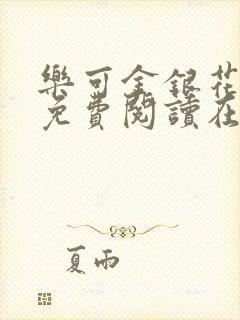 樂可金銀花
免費閱讀在
夏雨